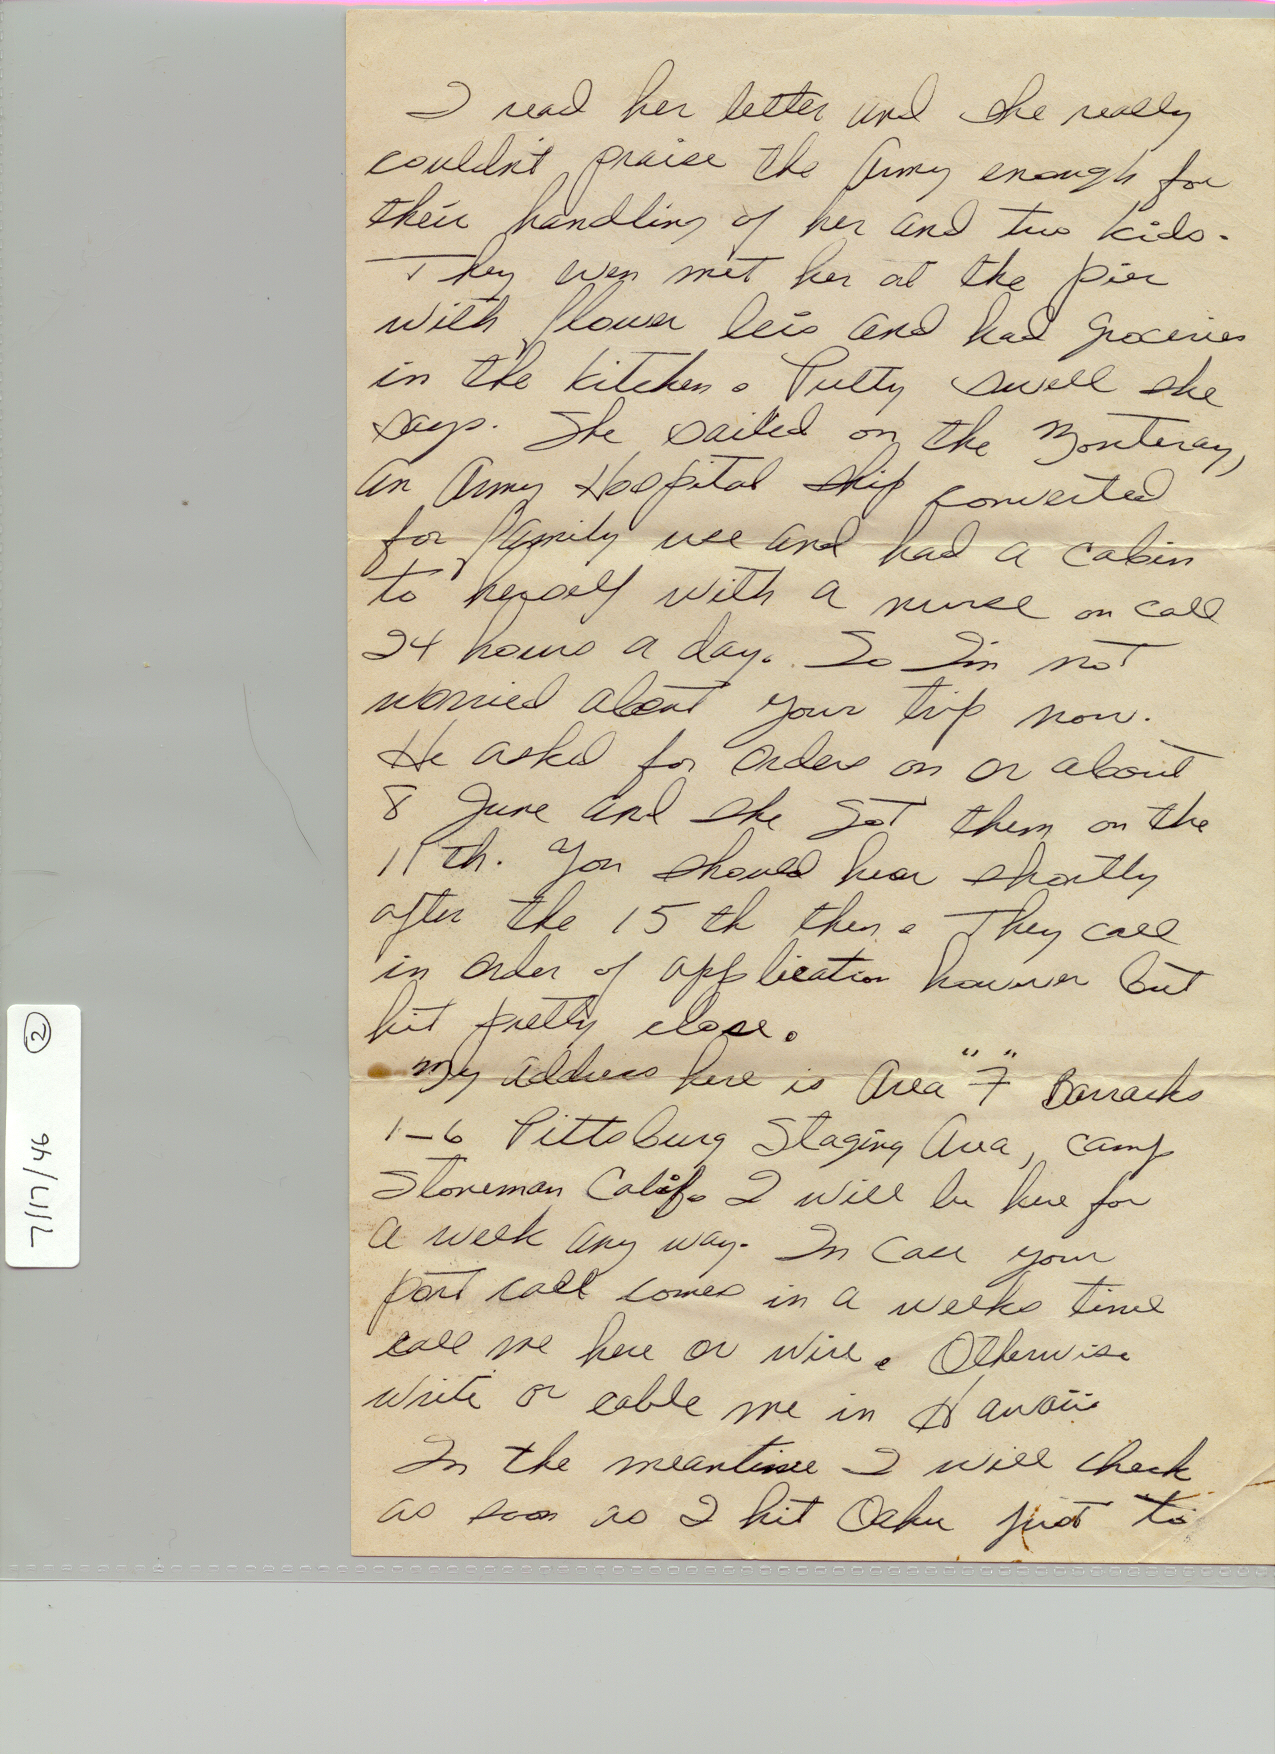 I read her letter and she really
couldn't praise the Army enough for
their handling of her and two kids.
They even met her at the pier
with flower leis and had groceries
in the kitchen. Pretty swell she
says. She sailed on the Monteray,
an Army Hospital ship converted
for family use and had a cabin
to herself with a nurse on call
24 hours a day. So I'm not
worried about your trip now.
He asked for orders on or about
8 June and she got them on the
11th. You should hear shortly
after the 15th then. They call
in order of application however but
hit pretty close.
My address here is Area "7" Barracks
1-6 Pittsburg Staging Area, Camp
Stoneman Calif. I will be here for
a week any way. In case your
port call comes in a weeks time
call me here or wire. Otherwise
write or cable me in Hawaii
In the meantime I will check
as soon as I hit Oahu just to
7/17/46 2